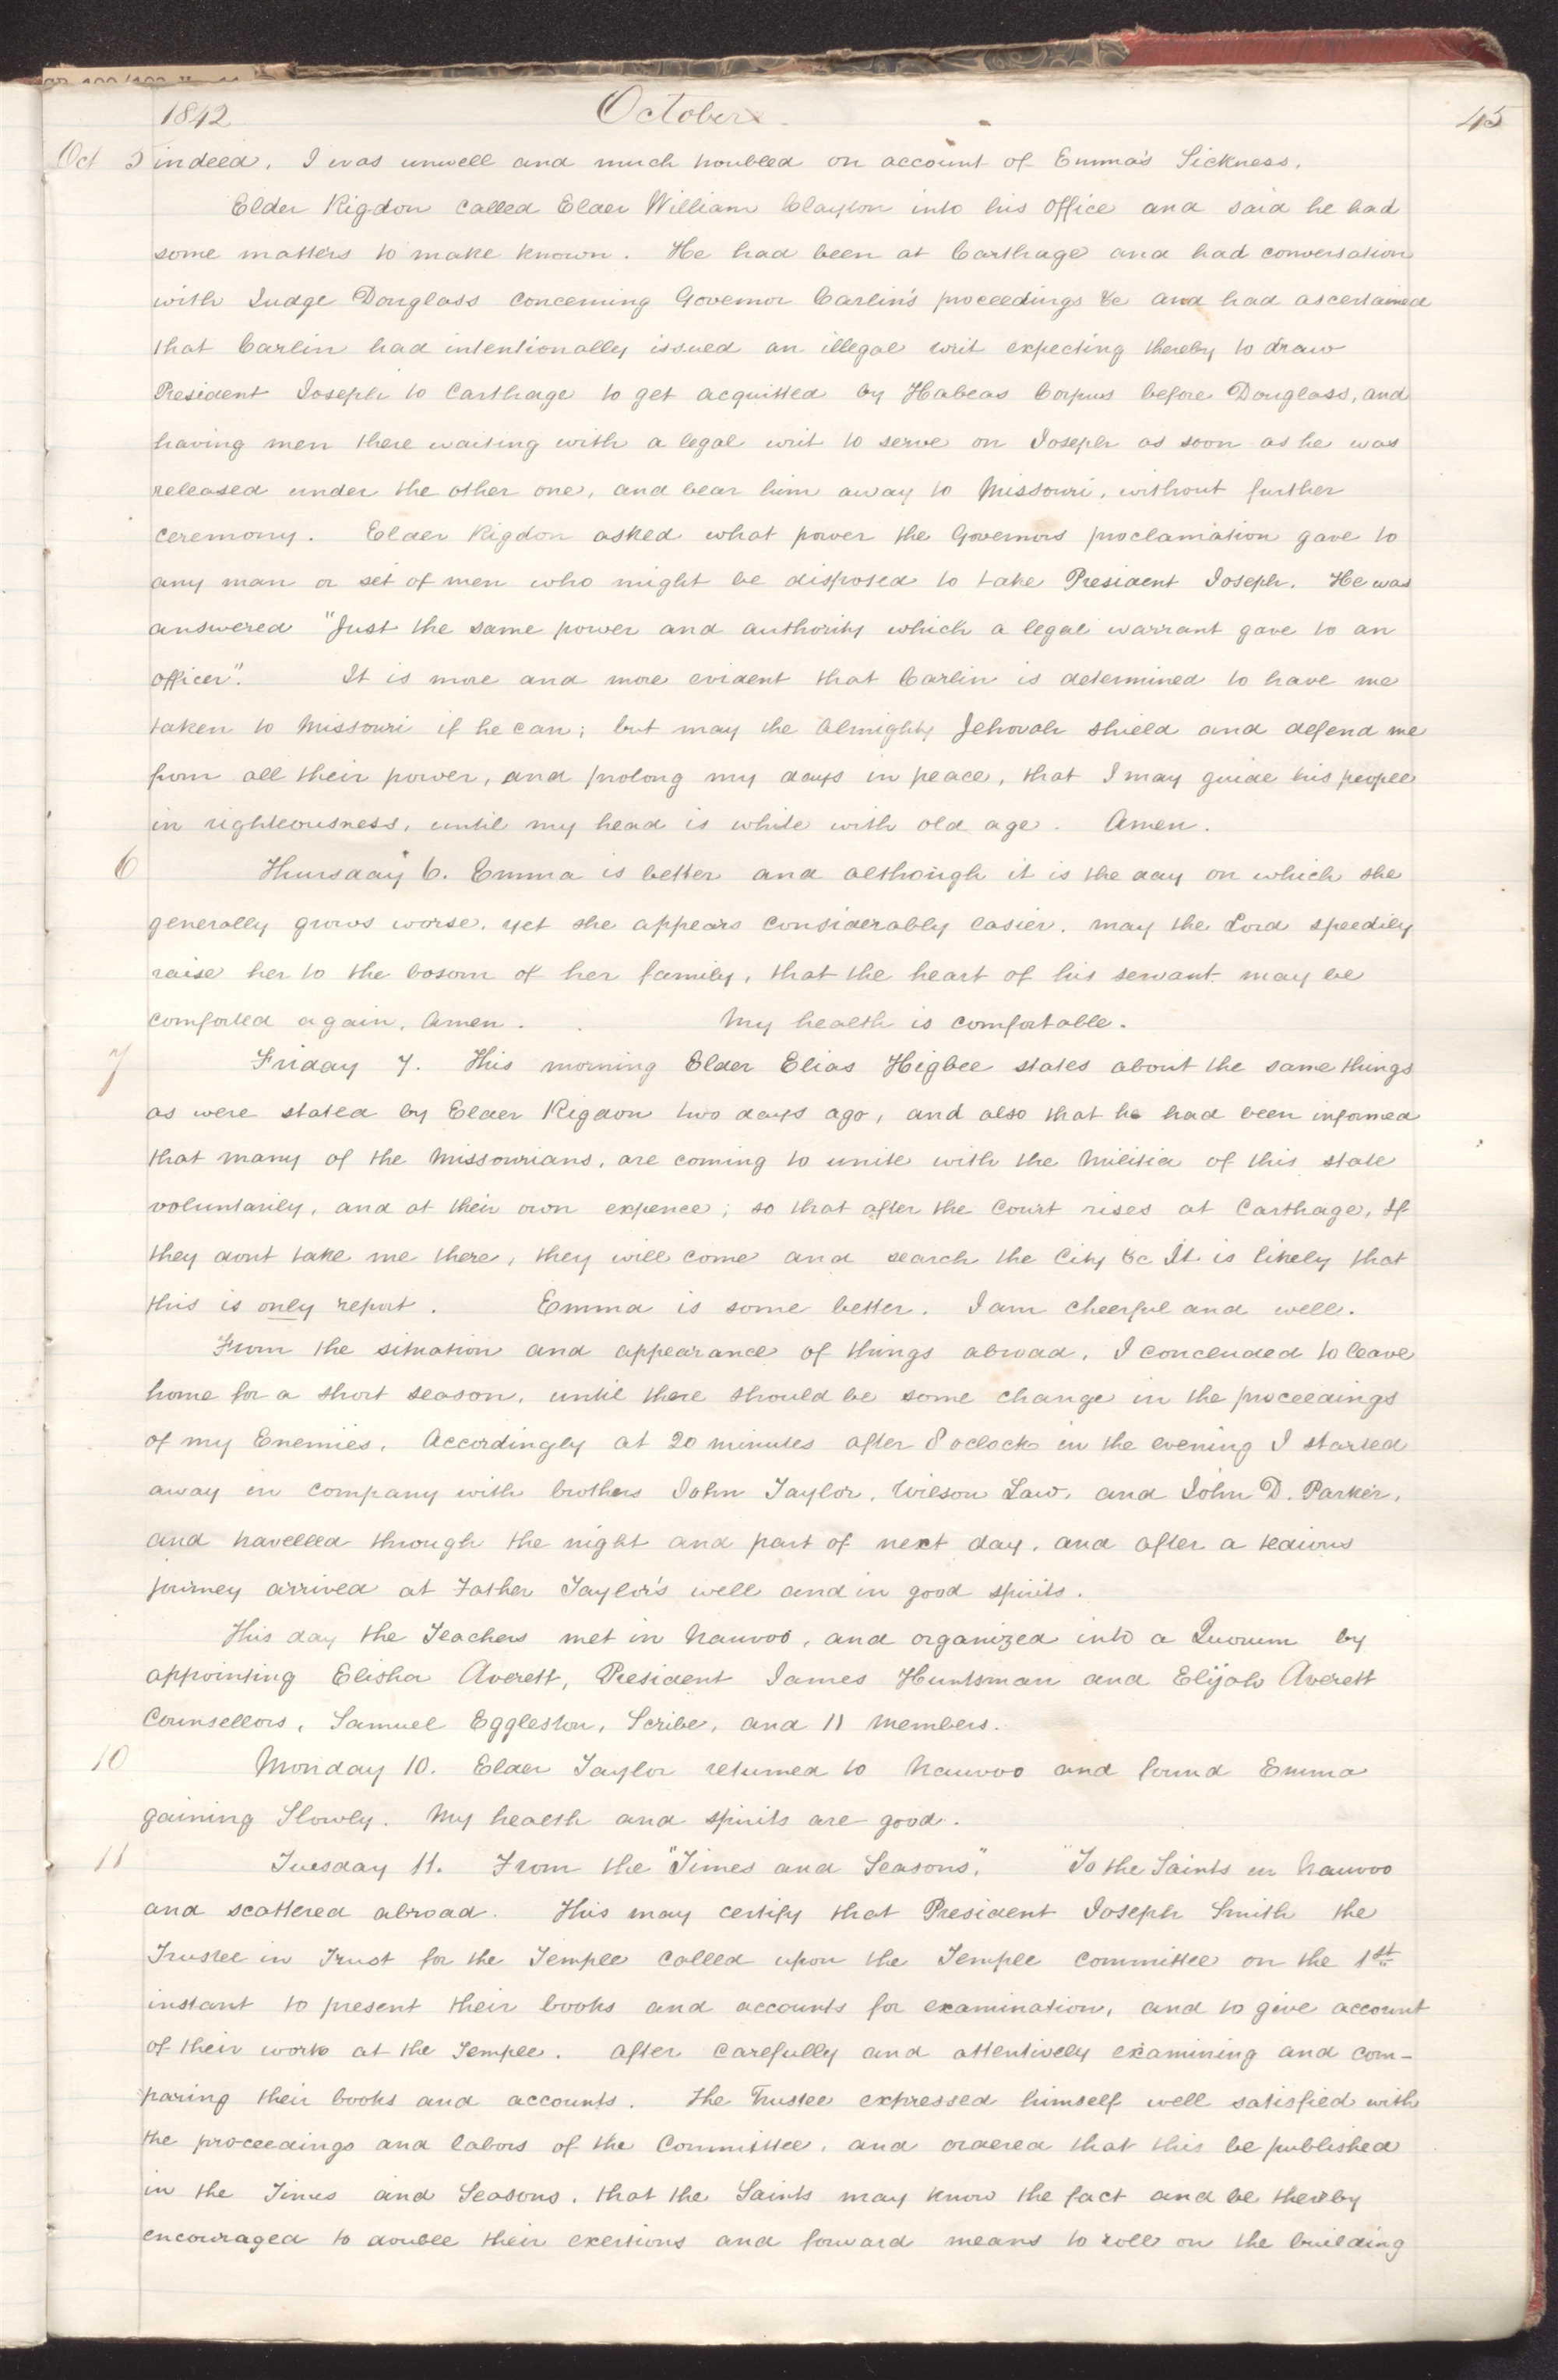 1842 October 45
Oct 5 indeed. I was unwell and much troubled on account of Emma's Sickness.
Elder Rigdon called Elder William Clayton into his Office and said he had
some matters to make known. He had been at Carthage and had conversation
with Judge Douglass concerning Governor Carlin's proceedings &c and had ascertained
that Carlin had intentionally issued an illegal writ expecting thereby to draw
President Joseph to Carthage to get acquitted by Habeas Corpus before Douglass, and
having men there waiting with a legal writ to serve on Joseph as soon as he was
released under the other one, and bear him away to Missouri, without further
ceremony. Elder Rigdon asked what power the Governors proclamation gave to
any man or set of men who might be disposed to take President Joseph. He was
answered "Just the same power and authority which a legal warrant gave to an
officer". It is more and more evident that Carlin is determined to have me
taken to Missouri if he can; but may the Almighty Jehovah shield and defend me
from all their power, and prolong my days in peace, that I may guide his people
in righteousness, until my head is white with old age. Amen.
6 Thursday 6. Emma is better and although it is the day on which she
generally grows worse, yet she appears considerably easier. May the Lord speedily
raise her to the bosom of her family, that the heart of his servant may be
comforted again, Amen. My health is comfortable.
7 Friday 7. This morning Elder Elias Higbee states about the same things
as were stated by Elder Rigdon two days ago, and also that he had been informed
that many of the Missourians, are coming to unite with the Militia of this state
voluntarily, and at their own expence; so that after the Court rises at Carthage, If
they dont take me there, they will come and search the City &c It is likely that
this is only report. Emma is some better. I am cheerful and well.
From the situation and appearance of things abroad, I concluded to leave
home for a short season, until there should be some change in the proceedings
of my Enemies. Accordingly at 20 minutes after 8 oclock in the evening I started
away in company with brothers John Taylor, Wilson Law, and John D. Parker,
and travelled through the night and part of next day, and after a tedious
journey arrived at Father Taylor's well and in good spirits.
This day the Teachers met in Nauvoo, and organized into a Quorum by
appointing Elisha Averett, President James Huntsman and Elijah Averett
Counsellors, Samuel Eggleston, Scribe, and 11 Members.
10 Monday 10. Elder Taylor returned to Nauvoo and found Emma
gaining Slowly. My health and spirits are good.
11 Tuesday 11. From the "Times and Seasons". "To the Saints in Nauvoo
and scattered abroad. This may certify that President Joseph Smith the
Trustee in Trust for the Temple called upon the Temple Committee on the 1st
instant to present their books and accounts for examination, and to give account
of their work at the Temple. After carefully and attentively examining and com-
paring their books and accounts. the Trustee expressed himself well satisfied with
the proceedings and labors of the Committee, and ordered that this be published
in the Times and Seasons, that the Saints may know the fact and be thereby
encouraged to double their exertions and forward means to roll on the building